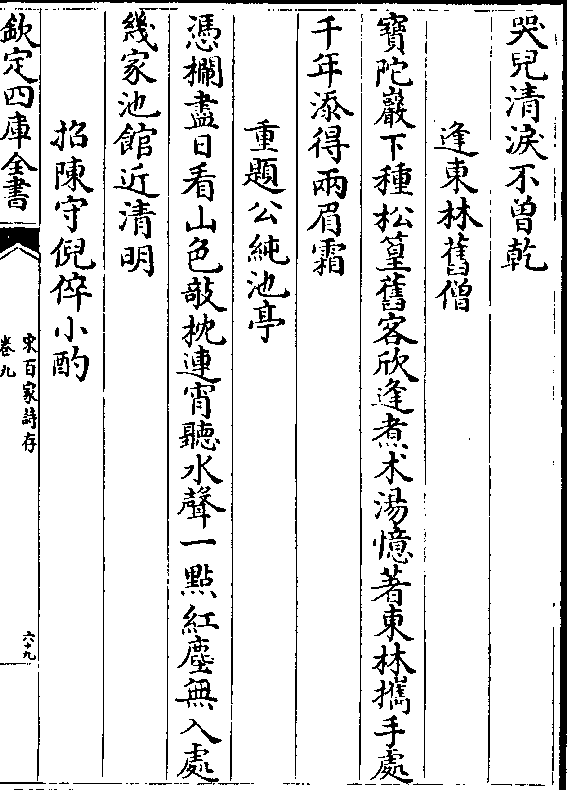 哭兒清淚不曾乾
逢東林舊僧
寶陀巖下種松篁舊客欣逢煮术湯憶著東林攜手處
千年添得兩眉霜
重題公純池亭
憑欄盡日看山色敲枕連宵聽水聲一點紅塵無入處
幾家池館近清明
招陳守倪倅小酌
欽定四庫全書
宋百家詩存
卷九
六十九